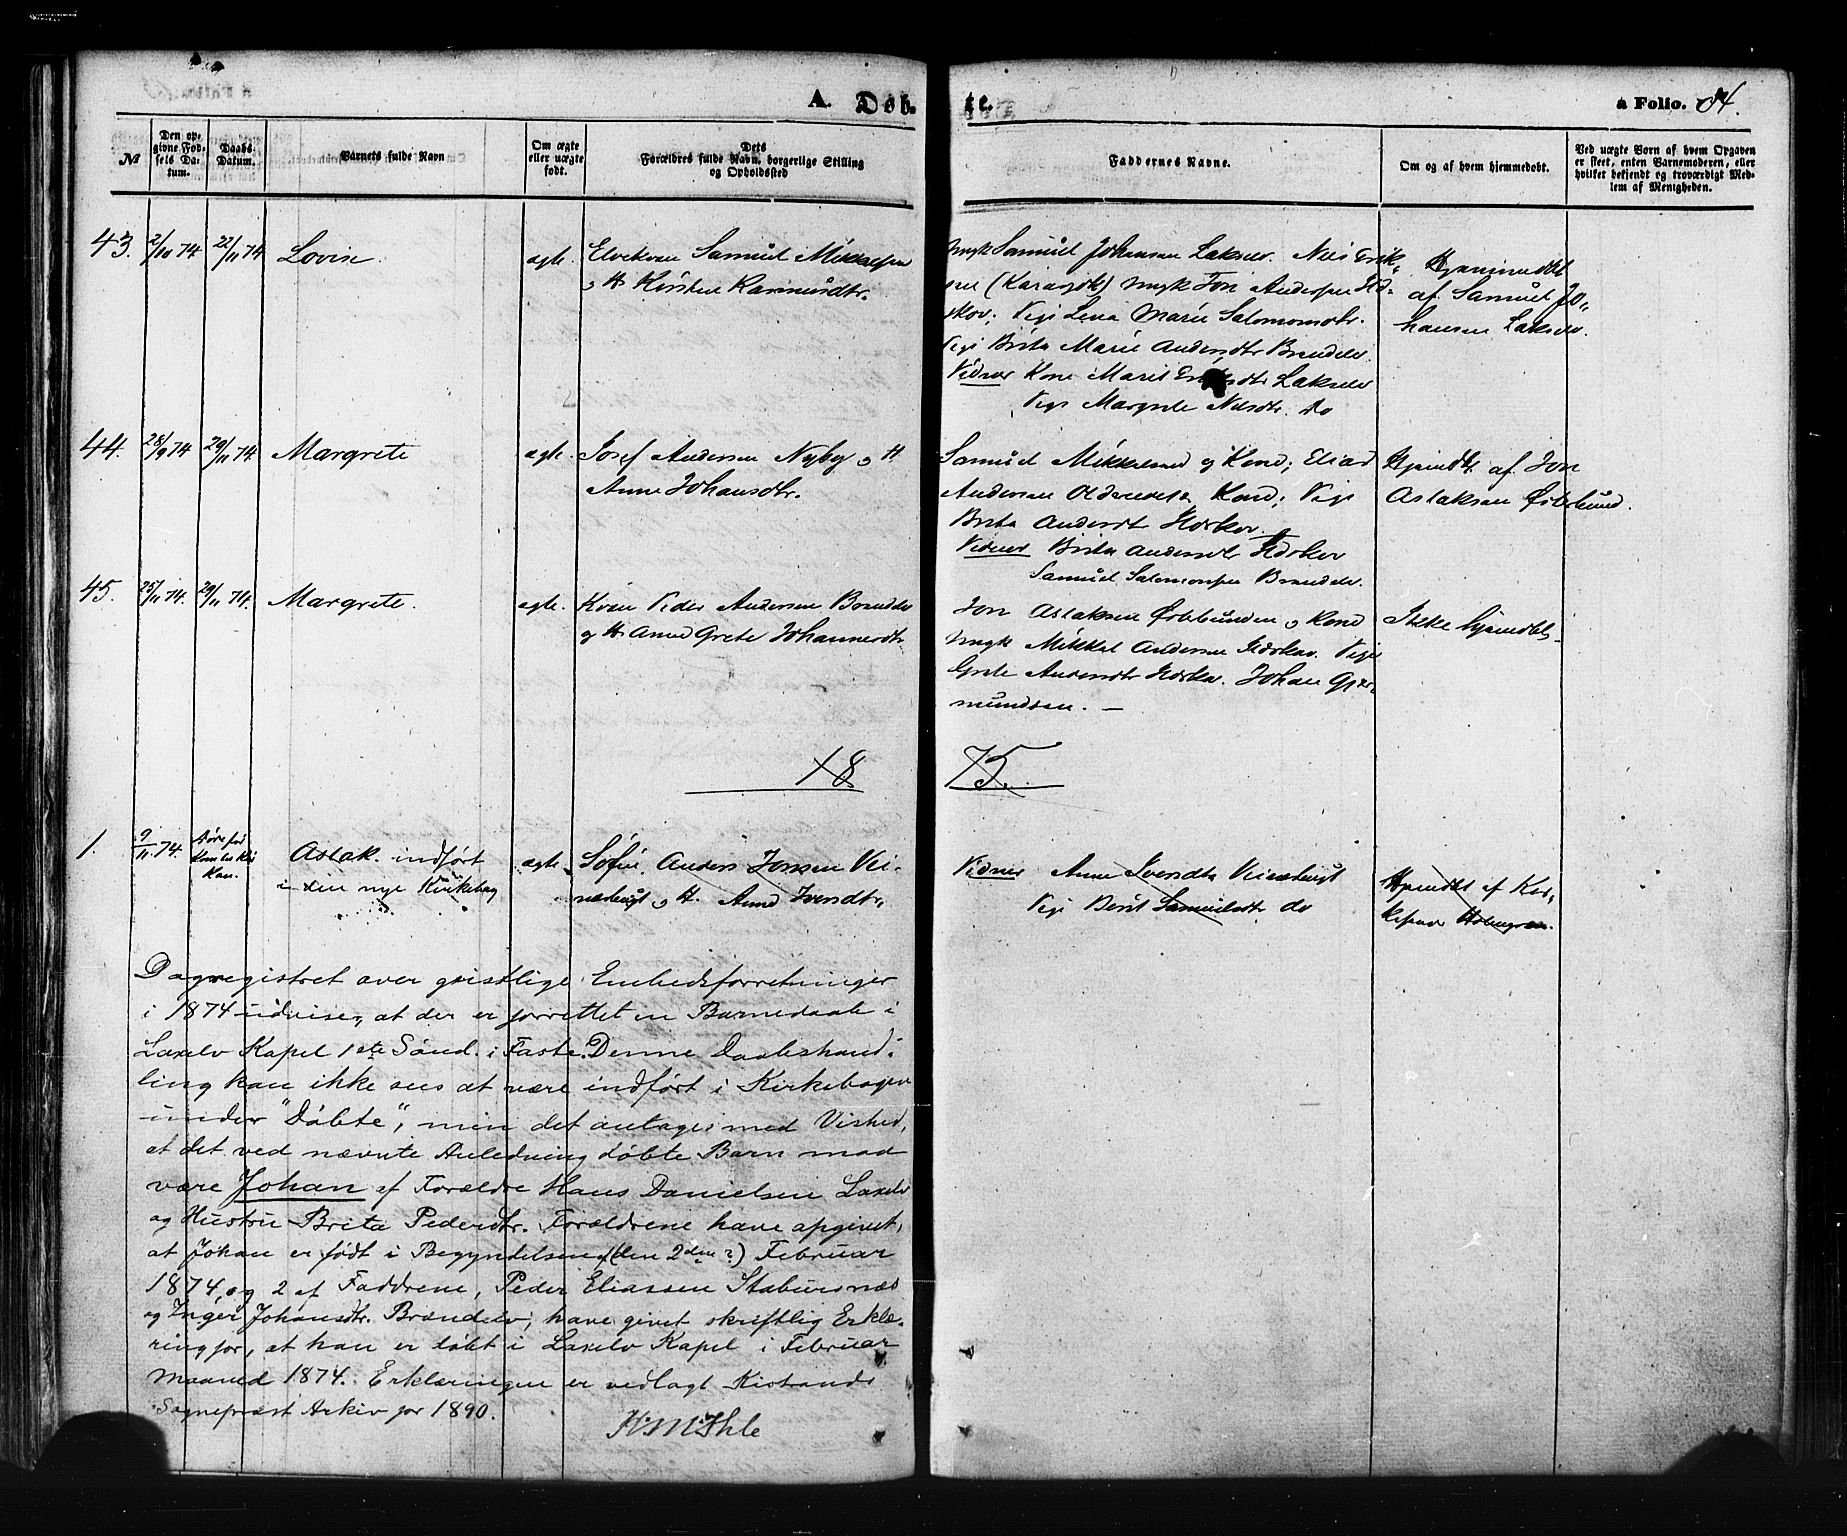 A. Døb-
te.
a Folio. 84.
№
Den op-
givne Fød-
sels Da-
tum.
Daabs
Datum.
Barnets fulde Navn
Om ægte
eller uægte
født.
Dets
Forældres fulde Navn, borgerlige Stilling
og Opholdssted
Faddernes Navne.
Om og af hvem hjemmedøbt.
Ved uægte Børn af hvem Opgaven
er skeet, enten Barnemoderen, eller
hvilket bekjendt og troværdigt Med-
lem af Menigheden.
43. 2/10 74 22/11 74 Lovise. ægte. Elvekven Samuel Mikkelsen
og H. Kirsten Rasmusdtr.
Ungk Samuel Johansen Lakselv. Nils Erik-
sen (Karasjok) Ungk Jon Andersen
skov; Pige Lena Marie Salomonsdtr.
Pige Brita Marie Andersdtr Brændelv.
Vidner Kone Marit Lakselv
Pige Margrete Nilsdtr. do
Hjemmedøbt
af Samuel Jo-
hansen Lakselv.
44. 28/9 74 29/11 74. Margrete ægte. Josef Andersen Nyby og H
Anne Johansdtr.
Samuel Mikkelsen og Kone; Elias
Andersen Kone; Pige
Brita Andersdt
Vidner Brita Andersdt
Samuel Salomonsen Brændelv.
Hjemdbt af Jon
Aslaksen Østerbund.
45. 25/11 74. 29/11 74. Margrete. ægte. Kven Peder Andersen Brændelv
og H. Anne Grete Johannesdtr
Jon Aslaksen Østerbunden og Kone
Ungk Mikkel Andersen Pige
Grete Andersdtr Johan Gjer-
mundsen. —
Ikke hjemdbt.
18
75.
1. 9/11. 74. Aslak. indført
i den nye Kirkebog
ægte. Søfin. Anders Jonsen Vei-
næsbugt og H. Anne Ivendtr.
Vidner Anne Veinæsbugt
Pige Berit Samuelsdtr do
Hjemdbt af Kir-
kesanger Holmgren.
Dagregistret over geistlige Embedsforretninger
i 1874 udviser, at der er forrettet en Barnedaab i
Laxelv Kapel 1ste Sönd. i Faste. Denne Daabshand-
ling kan ikke sees at være indført i Kirkebogen
under "Døbte", men det antages med Vished,
at det ved nævnte Anledning døbte Barn maa
være Johan af Forældre Hans Danielsen Laxelv
og Hustru Brita Pedersdtr. Forældrene have opgivet,
at Johan er født i Begyndelsen (den 2den?) Februar
1874, og 2 af Faddrene, Peder Eliassen Stabursnæs
og Inger Johansdtr. Brændelv, have givet skriftlig Erklæ-
ring for, at han er døbt i Laxelv Kapel i Februar
Maaned 1874. Erklæringen er vedlagt Kistrands
Sognepræst Arkiv for 1890.
H. M. Ihle